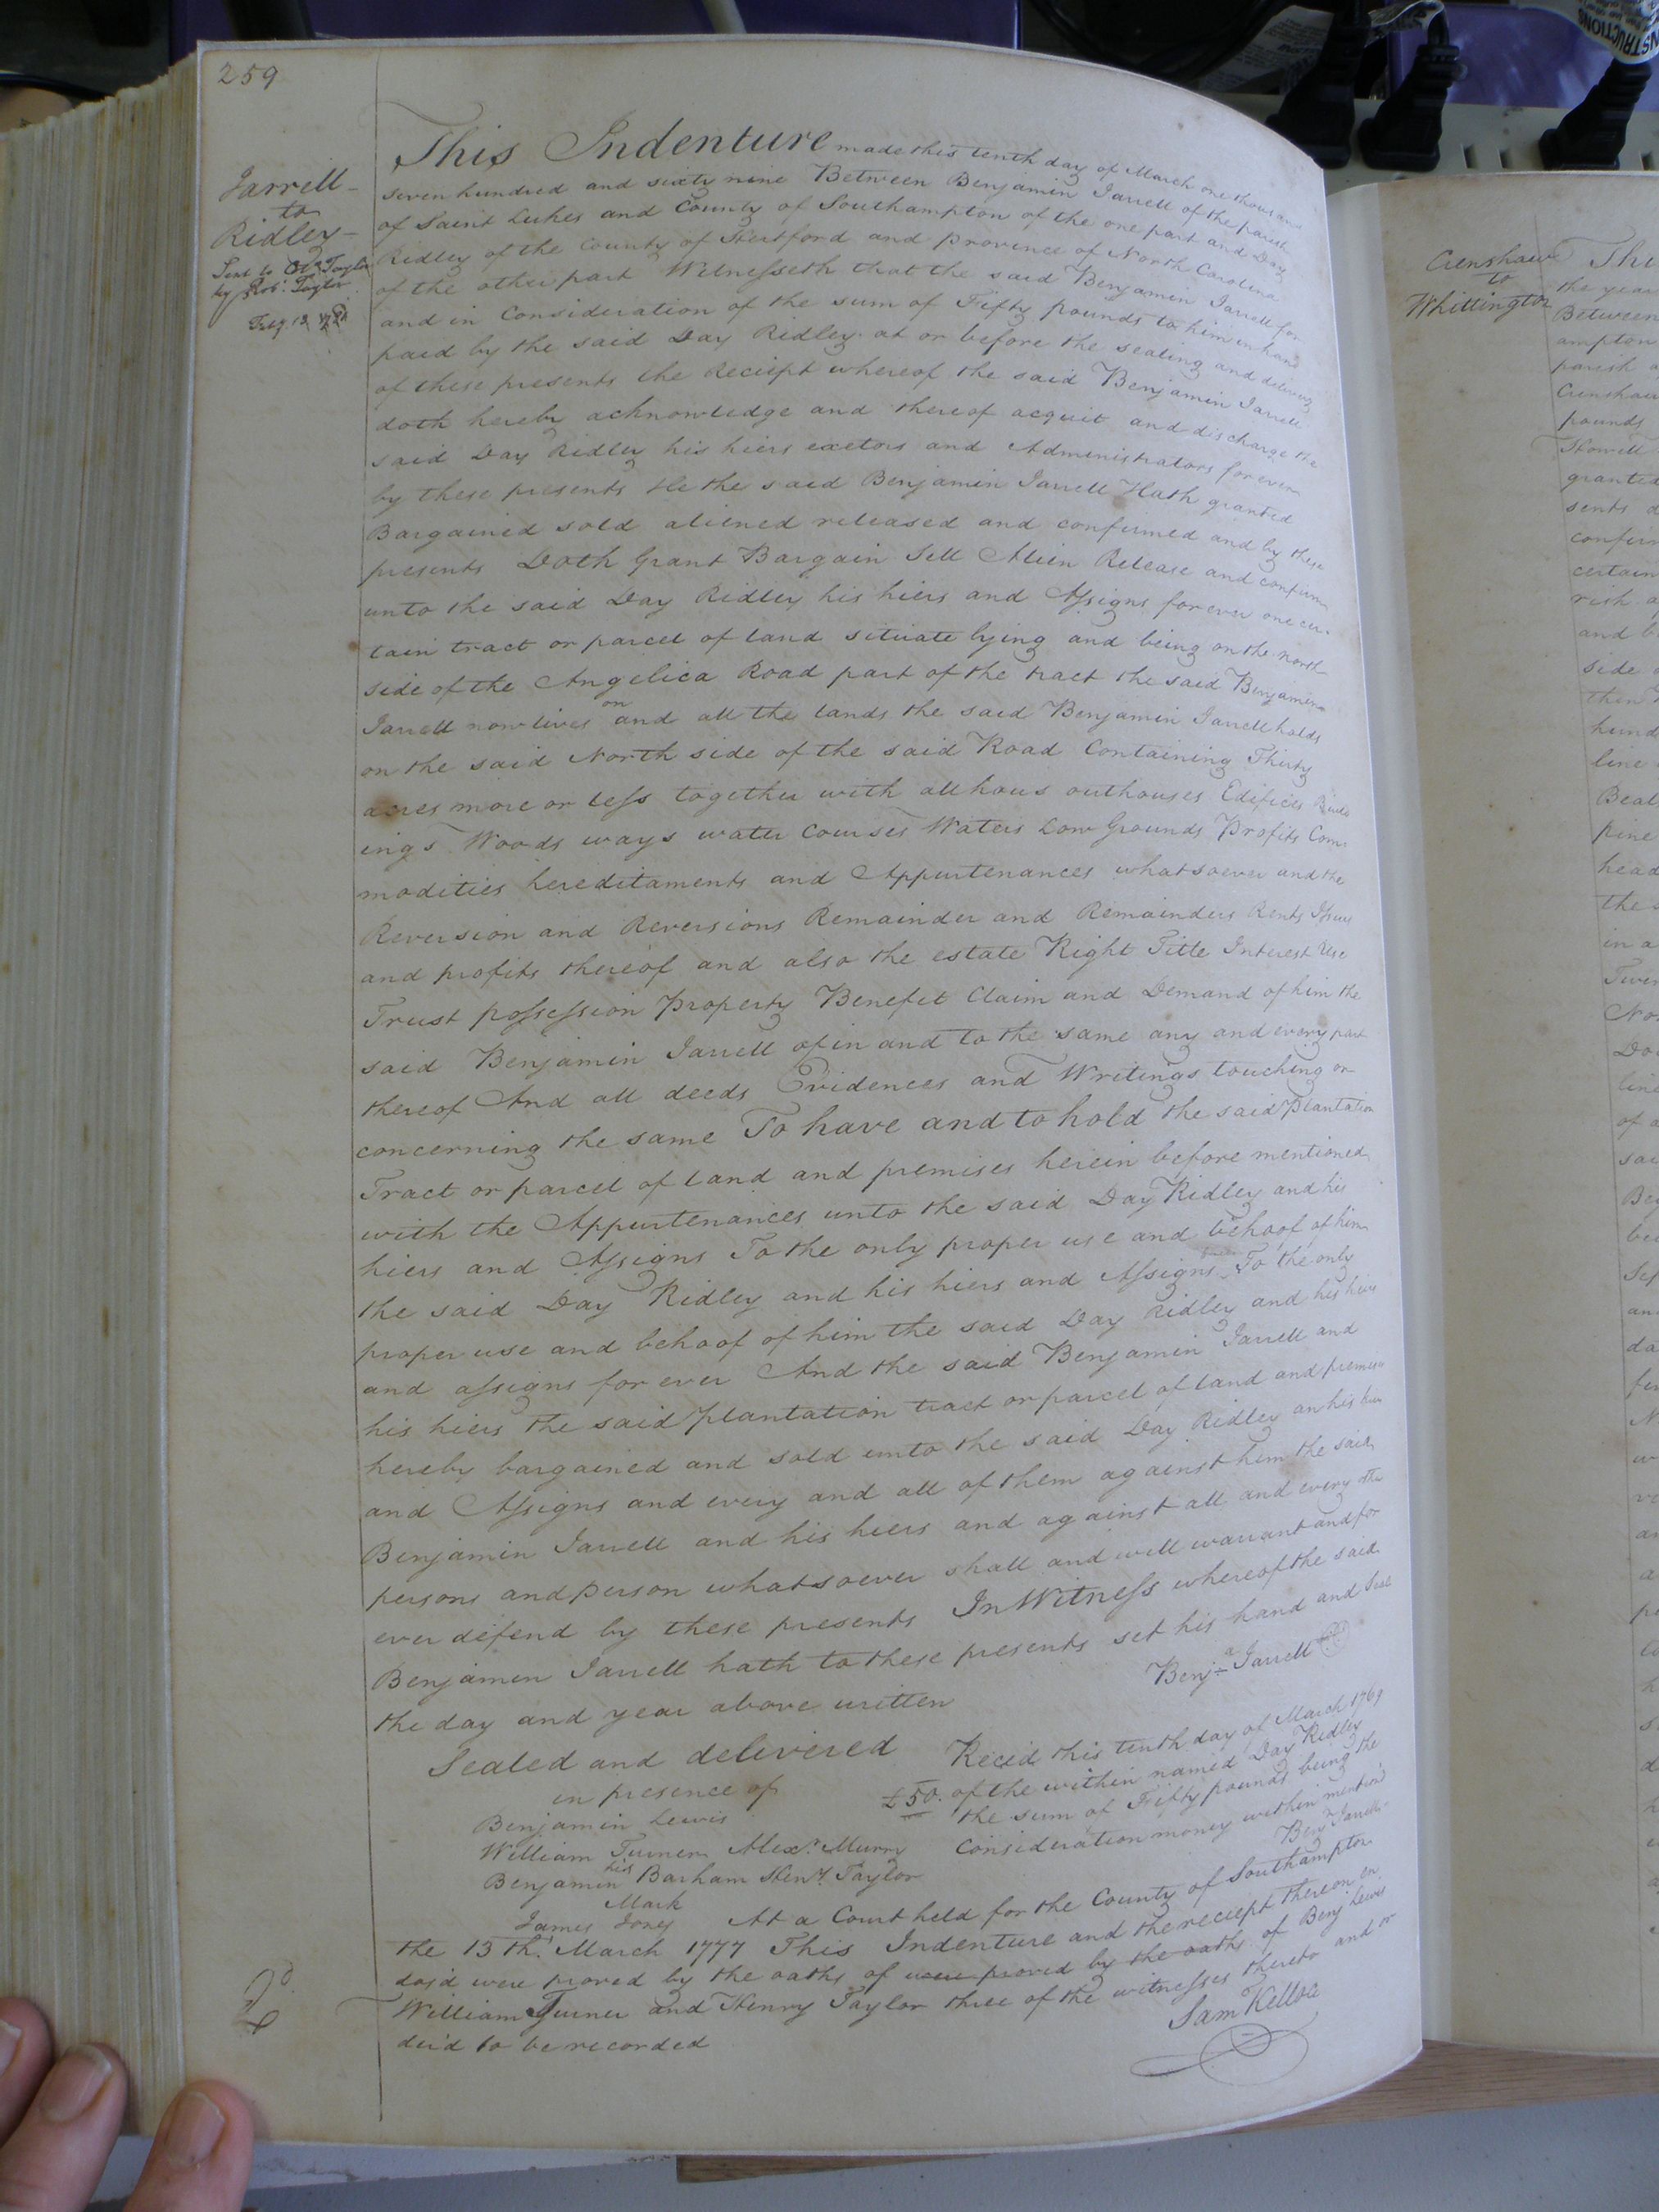 259
Jarrell
to
Ridley
Sent to
Taylor
by Rob.t Taylor
This Indenture made this tenth day of March one thousand
seven hundred and sixty nine Between Benjamin Jarrell of the parish
of Saint Lukes and County of Southampton of the one part and Day
Ridley of the County of Hertford and Province of North Carolina
of the other part Witnesseth that the said Benjamin Jarrell for
and in Consideration of the sum of Fifty pounds to him in hand
paid by the said Day Ridley at or before the sealing and delivery
of these presents the Reciept whereof the said Benjamin Jarrell
doth hereby acknowledge and thereof acquit and discharge the
said Day Ridley his hiers exetors and Administrators for ever
by these presents He the said Benjamin Jarrell Hath granted
Bargained sold aliened released and confirmed and by these
presents Doth Grant Bargain Sell Alien Release and confirm
unto the said Day Ridley his hiers and Assigns for ever one cer-
tain tract or parcel of land situate lying and being on the north
side of the Angelica Road part of the tract the said Benjamin
Jarrell now lives on and all the lands the said Benjamin Jarrell holds
on the said North side of the said Road Containing Thirty
acres more or less together with all hous outhouses Edifices Build
ings Woods ways water Courses Waters Low Grounds Profits Com-
modities hereditaments and Appurtenances whatsoever and the
Reversion and Reversions Remainder and Remainders Rents Issues
and profits thereof and also the estate Right Title Interest Use
Trust possession Property Benefit Claim and Demand of him the
said Benjamin Jarrell of in and to the same any and every part
thereof And all deeds Evidences and Writings touching or
concerning the same To have and to hold the said Plantation
Tract or parcel of land and premises herein before mentioned
with the Appurtenances unto the said Day Ridley and his
hiers and Assigns To the only proper use and behoof of him
the said Day Ridley and his hiers and Assigns To the only
proper use and behoof of him the said Day Ridley and his hiers
and assigns for ever And the said Benjamin Jarrell and
his hiers the said plantation tract or parcel of land and premises
hereby bargained and sold unto the said Day Ridley an his hiers
and Assigns and every and all of them against him the said
Benjamin Jarrell and his hiers and against all and every othe
persons and person whatsoever shall and will warrant and for
ever defend by these presents In Witness whereof the said
Benjamin Jarrell hath to these presents set his hand and Seal
the day and year above written
Benj.a Jarrell
Sealed and delivered
in presence of
Benjamin Lewis
William Turner Alex.r Murry
Benjamin his Barham Hen.y Taylor
Mark
James Jones
Recd this tenth day of March 1769
£50. of the within named Day Ridley
the sum of Fifty pounds being the
Consideration money within mention'd
Benj.a Jarrell
At a Court held for the County of Southampton
the 13th March 1777 This Indenture and the reciept thereon en
dosd were proved by the oaths of were proved by the oaths of Benj Lewis
William Turner and Henry Taylor three of the witnesses thereto and or
derd to be recorded
Sam Kello
Crenshaw
to
Whittington
the year
Between
ampton
parish
Crenshaw
pounds
Howell
granted
sents
certain
and
side
then
hund
line
pine
head
the
in a
line
of